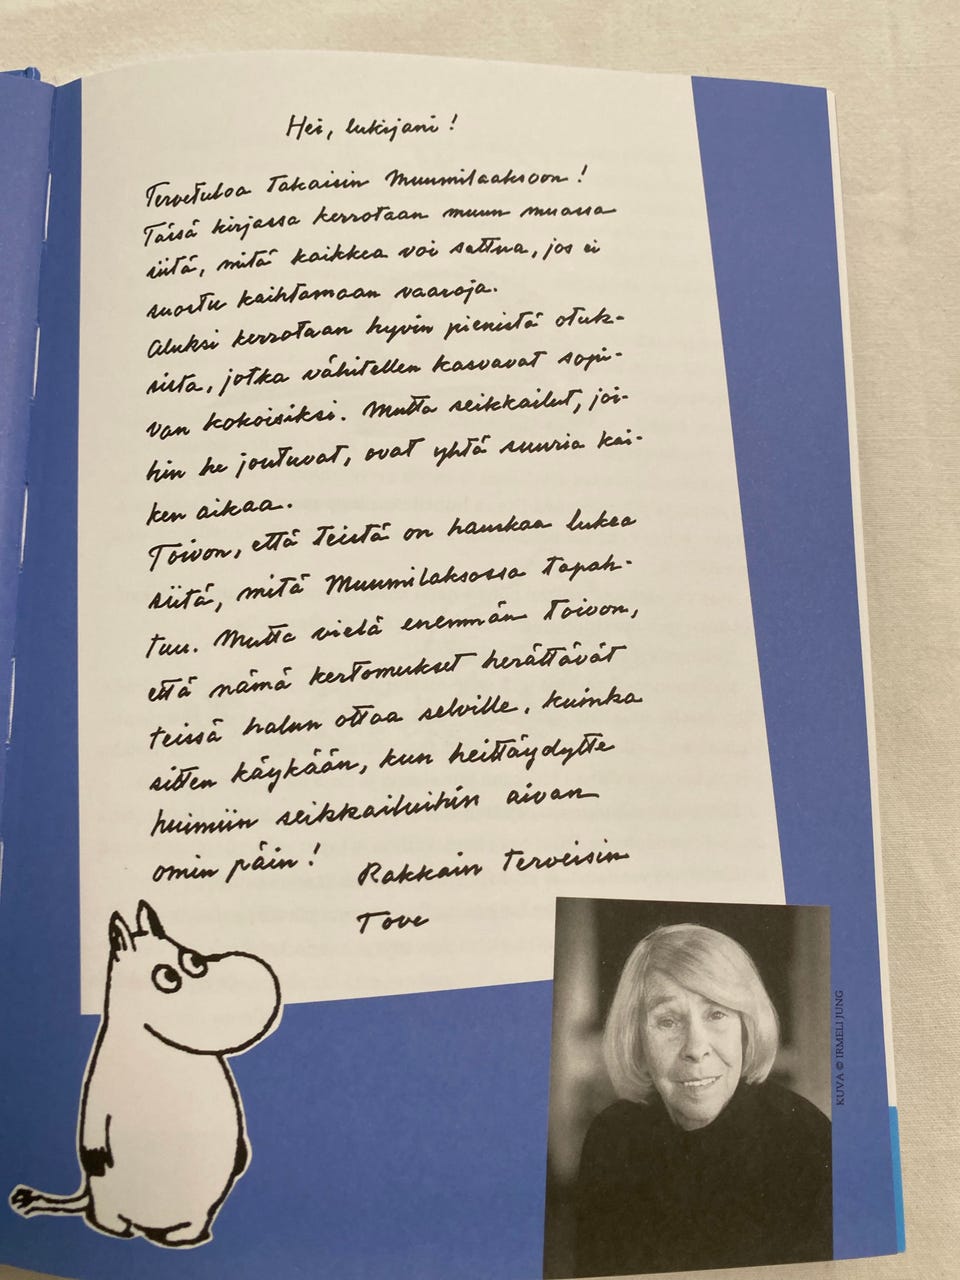 Hei, lukijani!
Tervetuloa takaisin Muumilaaksoon!
Tässä kirjassa kerrotaan muun muassa
siitä, mitä kaikkea voi sattua, jos ei
suostu kaihtamaan vaaroja.
Aluksi kerrotaan hyvin pienistä otuk-
sista, jotka vähitellen kasvavat sopi-
van kokoisiksi. Mutta seikkailut, joi-
hin he joutuvat, ovat yhtä suuria kai-
ken aikaa.
Toivon, että teistä on hauskaa lukea
siitä, mitä Muumilaksossa tapah-
tuu. Mutta vielä enemmän toivon,
että nämä kertomukset herättävät
teissä halun ottaa selville, kuinka
sitten käykään, kun heittäydytte
huimiin seikkailuihin aivan
omin päin!
Rakkain terveisin
Tove
KUVA © IRMELI JUNG